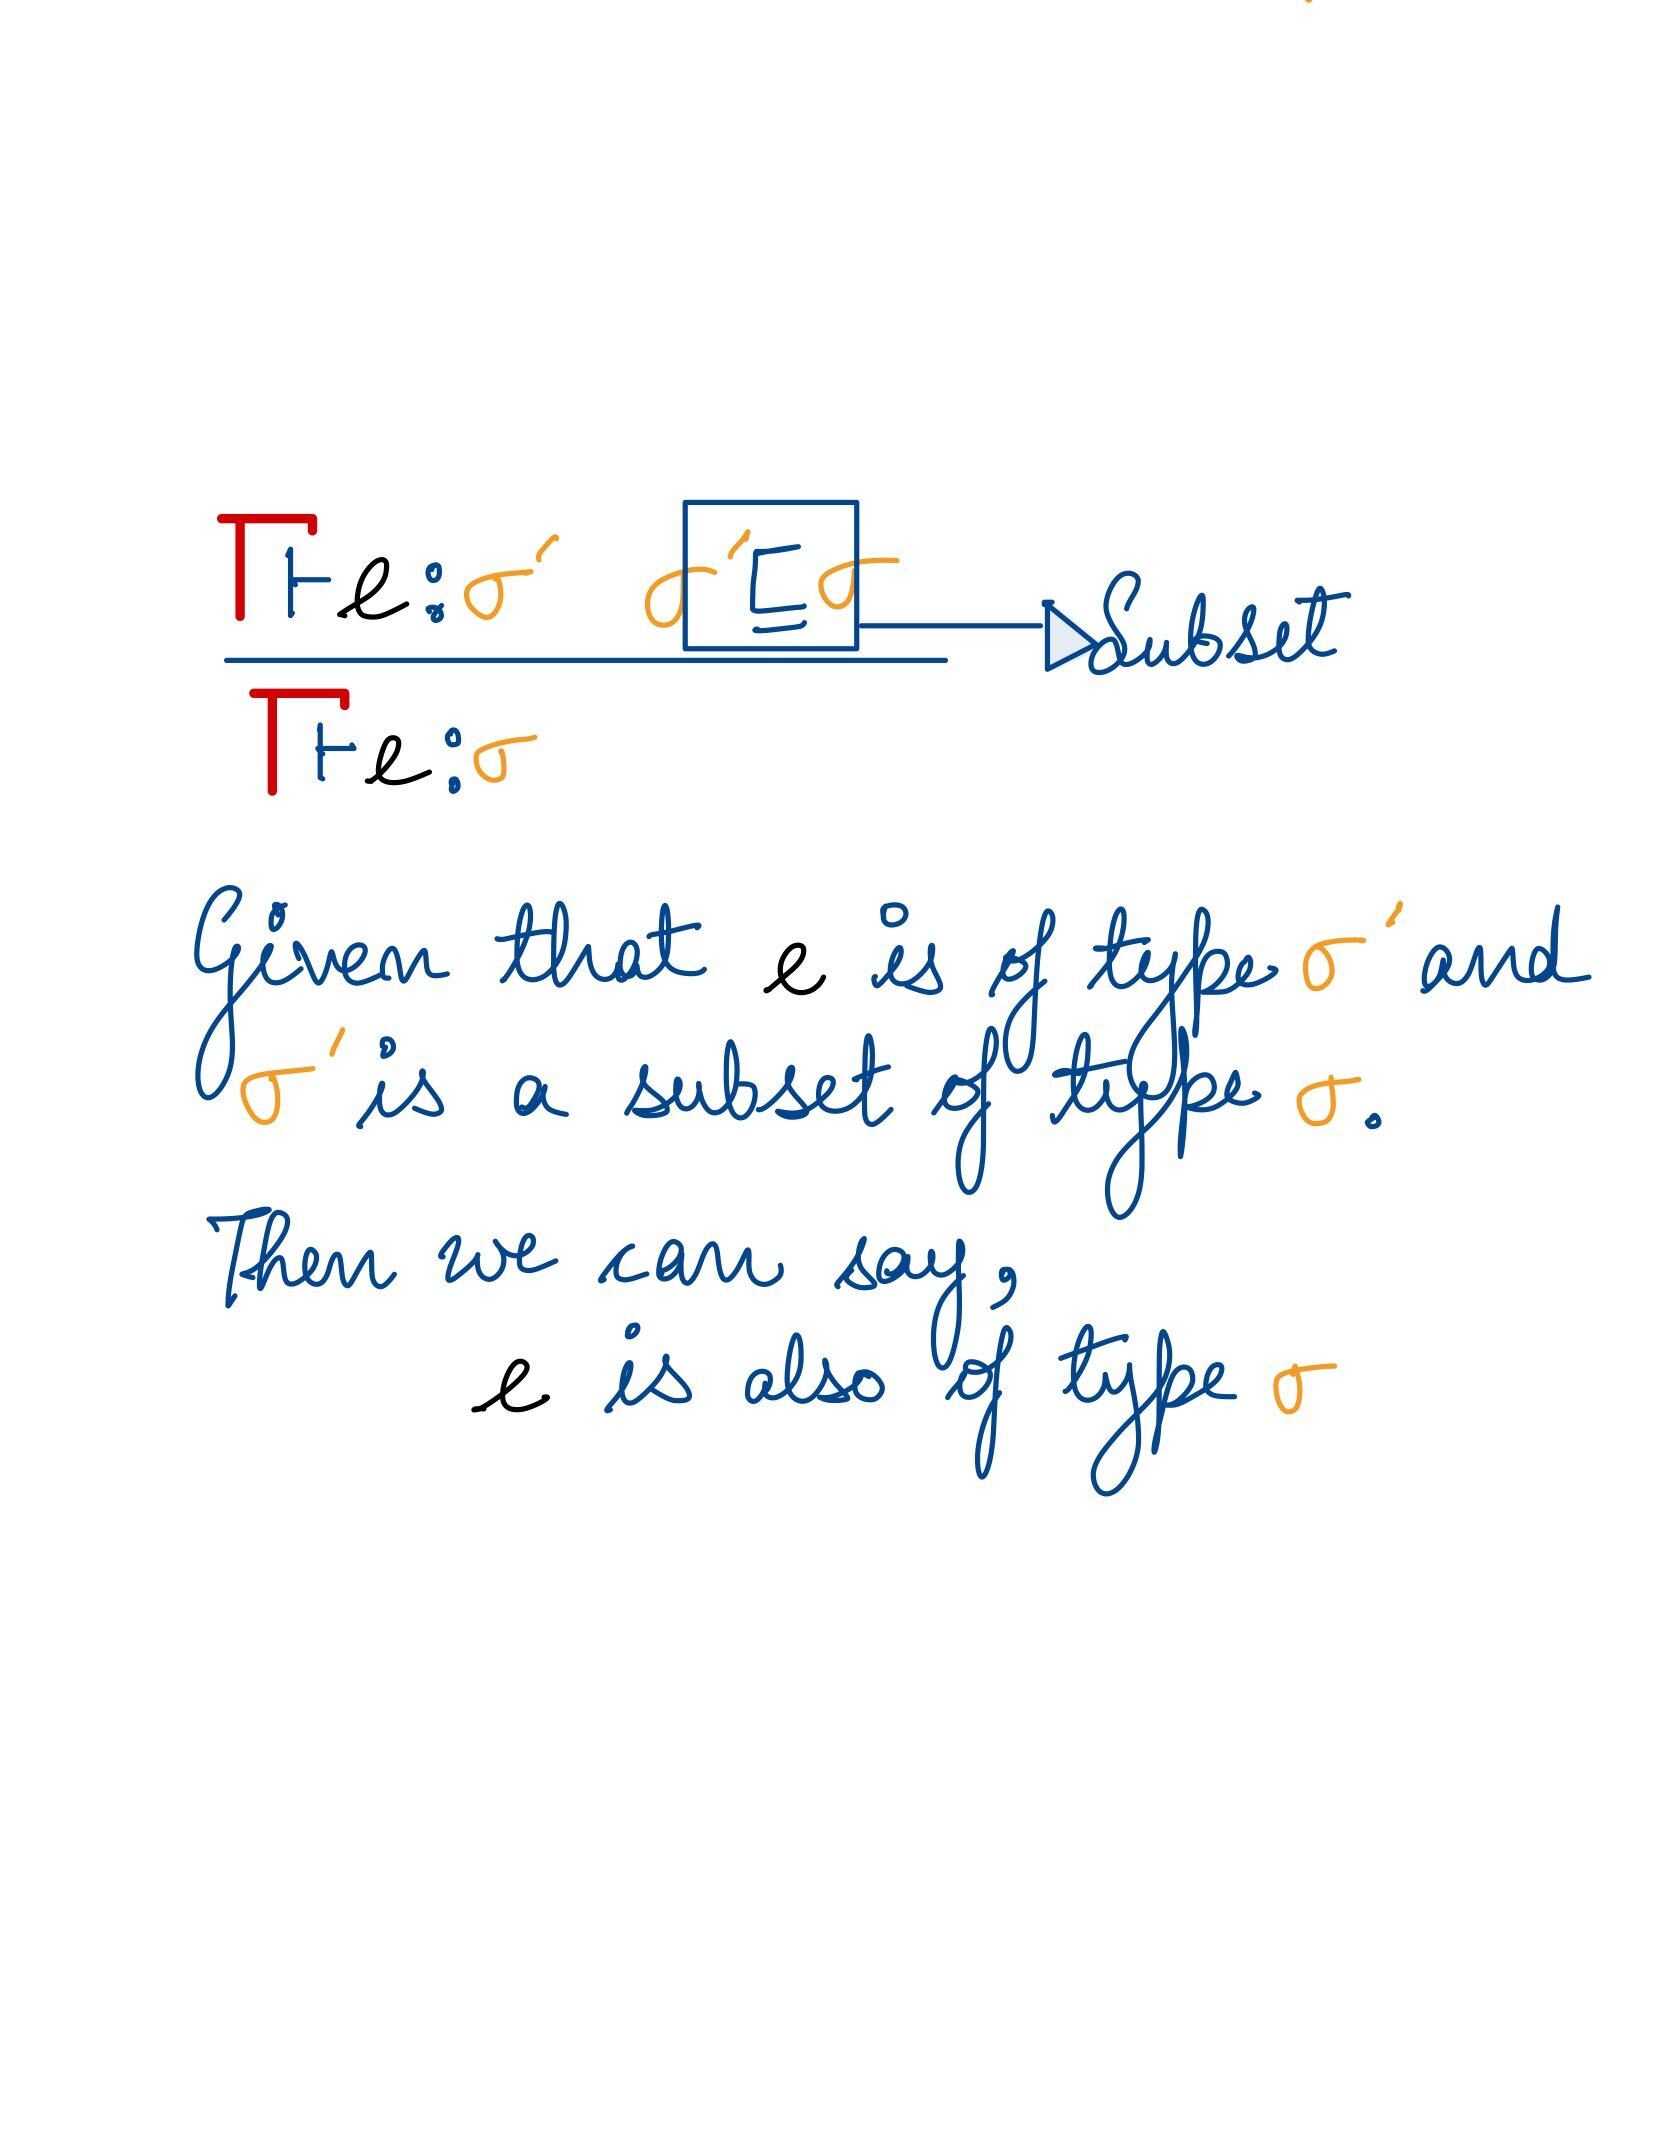 Γ ⊢ e : σ′ σ′ ⊑ σ Subset
Γ ⊢ e : σ
Given that e is of type σ′ and
σ′ is a subset of type σ.
Then we can say,
e is also of type σ